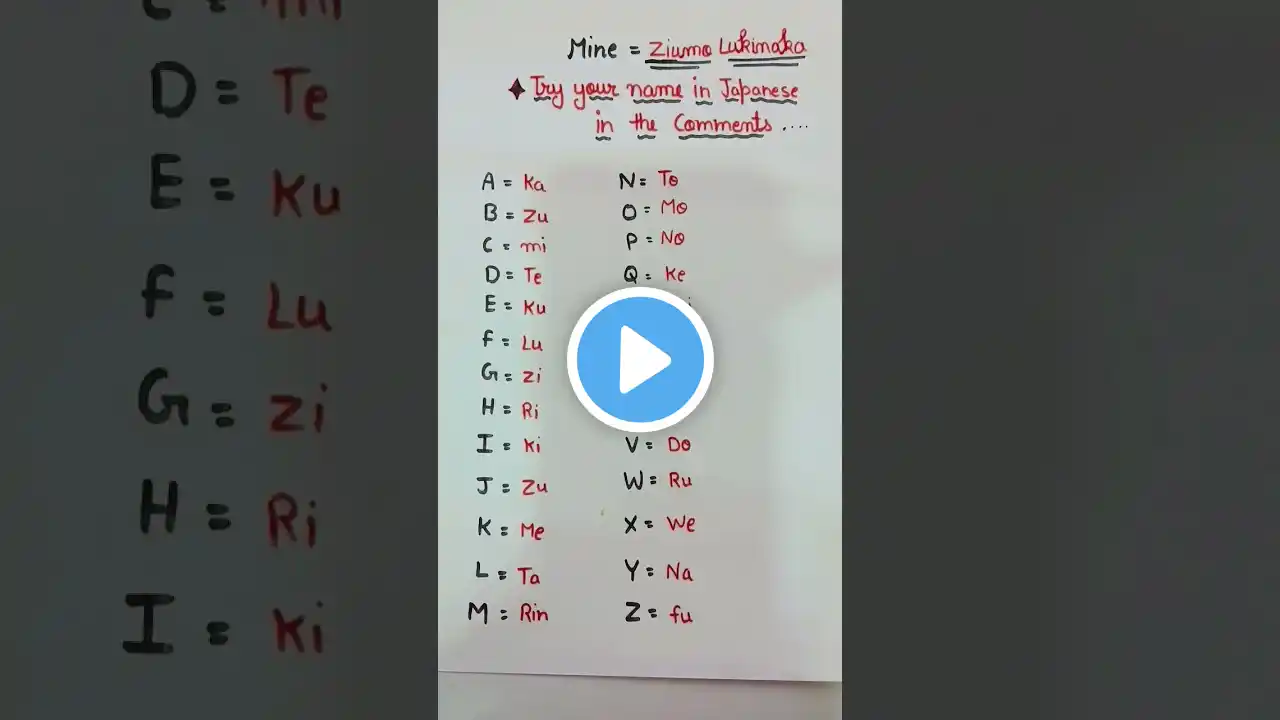 D = Te
E = Ku
F = Lu
G = zi
H = Ri
I = Ki
Mine = Ziumo Lukimoka
Try your name in Japanese
in the Comments ....
A = Ka
B = Zu
C = mi
D = Te
E = Ku
F = Lu
G = zi
H = Ri
I = Ki
J = Zu
K = Me
L = Ta
M = Rin
N = To
O = Mo
P = No
Q = Ke
V = Do
W = Ru
X = We
Y = Na
Z = fu